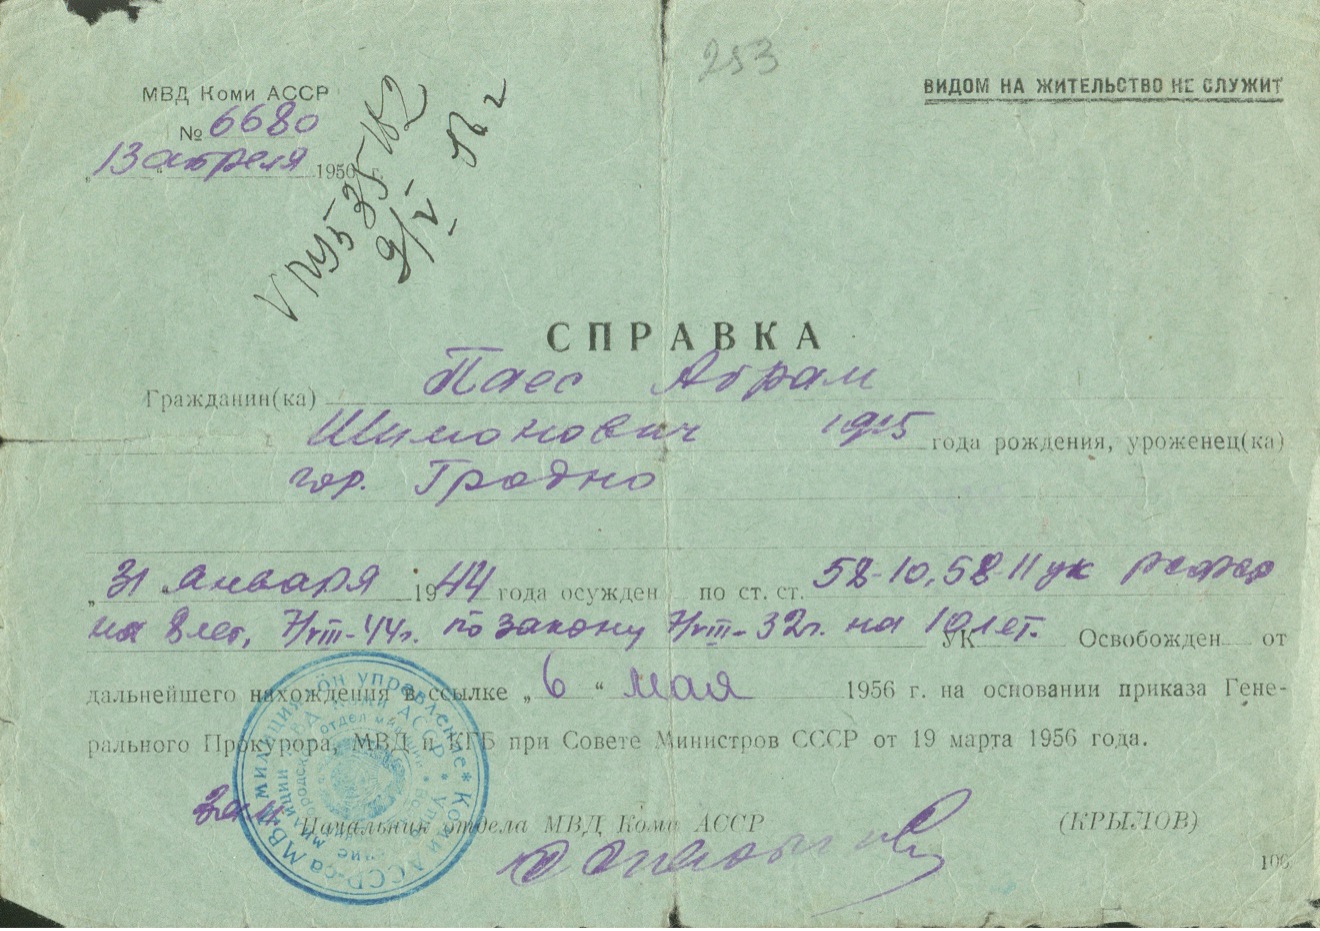 253
МВД Коми АССР
№ 6680
„13" апреля 1956 г.
ВИДОМ НА ЖИТЕЛЬСТВО НЕ СЛУЖИТ
V ПУ 535182
9/V 56 г
СПРАВКА
Гражданин(ка) Паес Абрам
Шимонович 1915 года рождения, уроженец(ка)
гор. Гродно
„31 января 1944 года осужден по ст. ст. 58-10, 58-11 ук РСФСР
на 8 лет, 7/VIII-44г. по закону 7/VIII-32г. на 10 лет. УК Освобожден от
дальнейшего нахождения в ссылке „6“ мая 1956 г. на основании приказа Гене-
рального Прокурора, МВД и КГБ при Совете Министров СССР от 19 марта 1956 года.
Зам. Начальник отдела МВД Коми АССР (КРЫЛОВ)
106